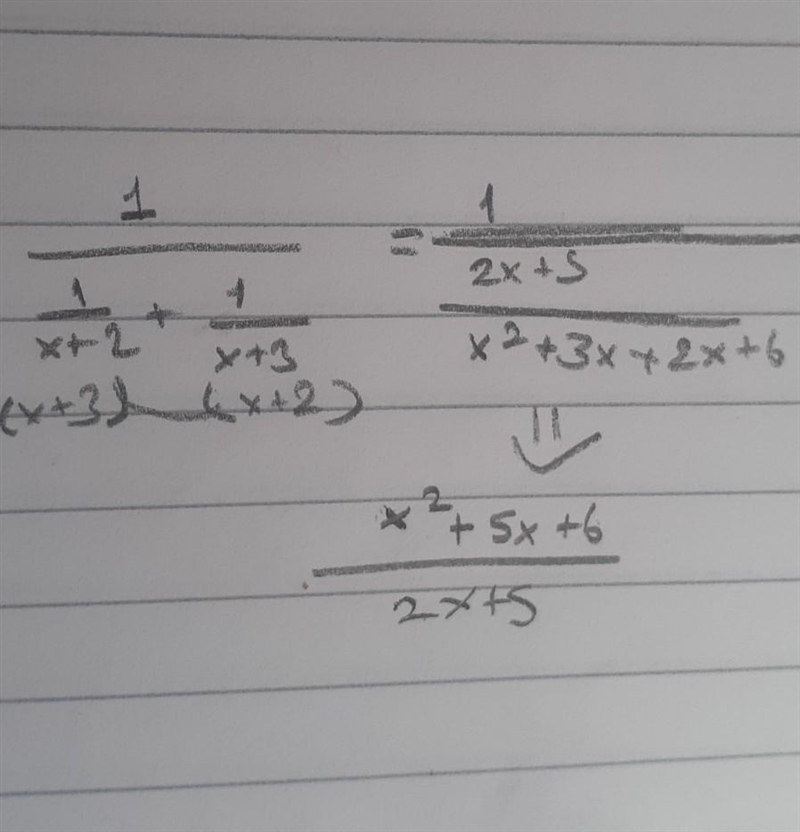 1 = 1
1 + 1 2x+5
x+2 x+3 x²+3x+2x+6
(x+3) (x+2)
x²+5x+6
2x+5